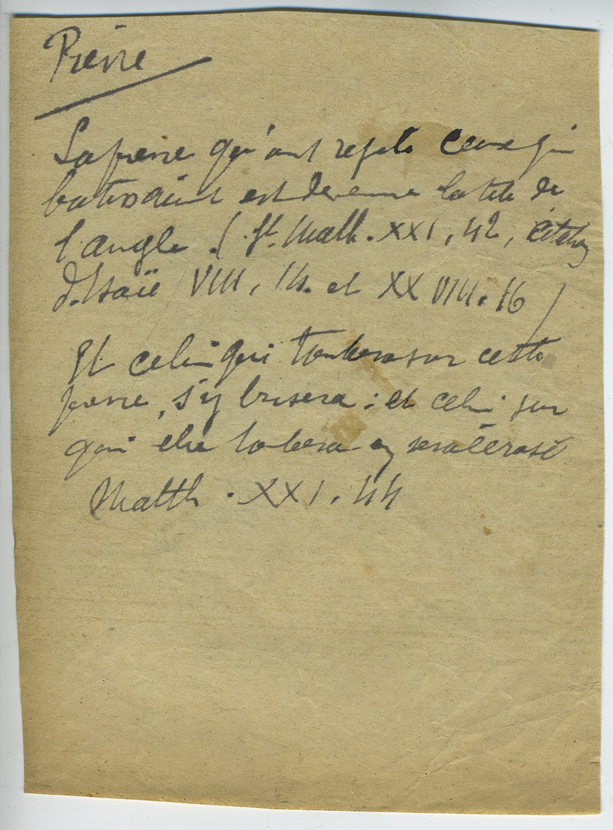 Pierre
La pierre qu'ont rejeté ceux qui
batissaient est devenue la tête de
l'angle. (St. Math. XXI, 42, citation
d'Isaïe VIII, 14. et XXVIII. 16)
Et celui qui tombera sur cette
pierre, s'y brisera : et celui sur
qui elle tombera en sera écrasé
Matth. XXI. 44